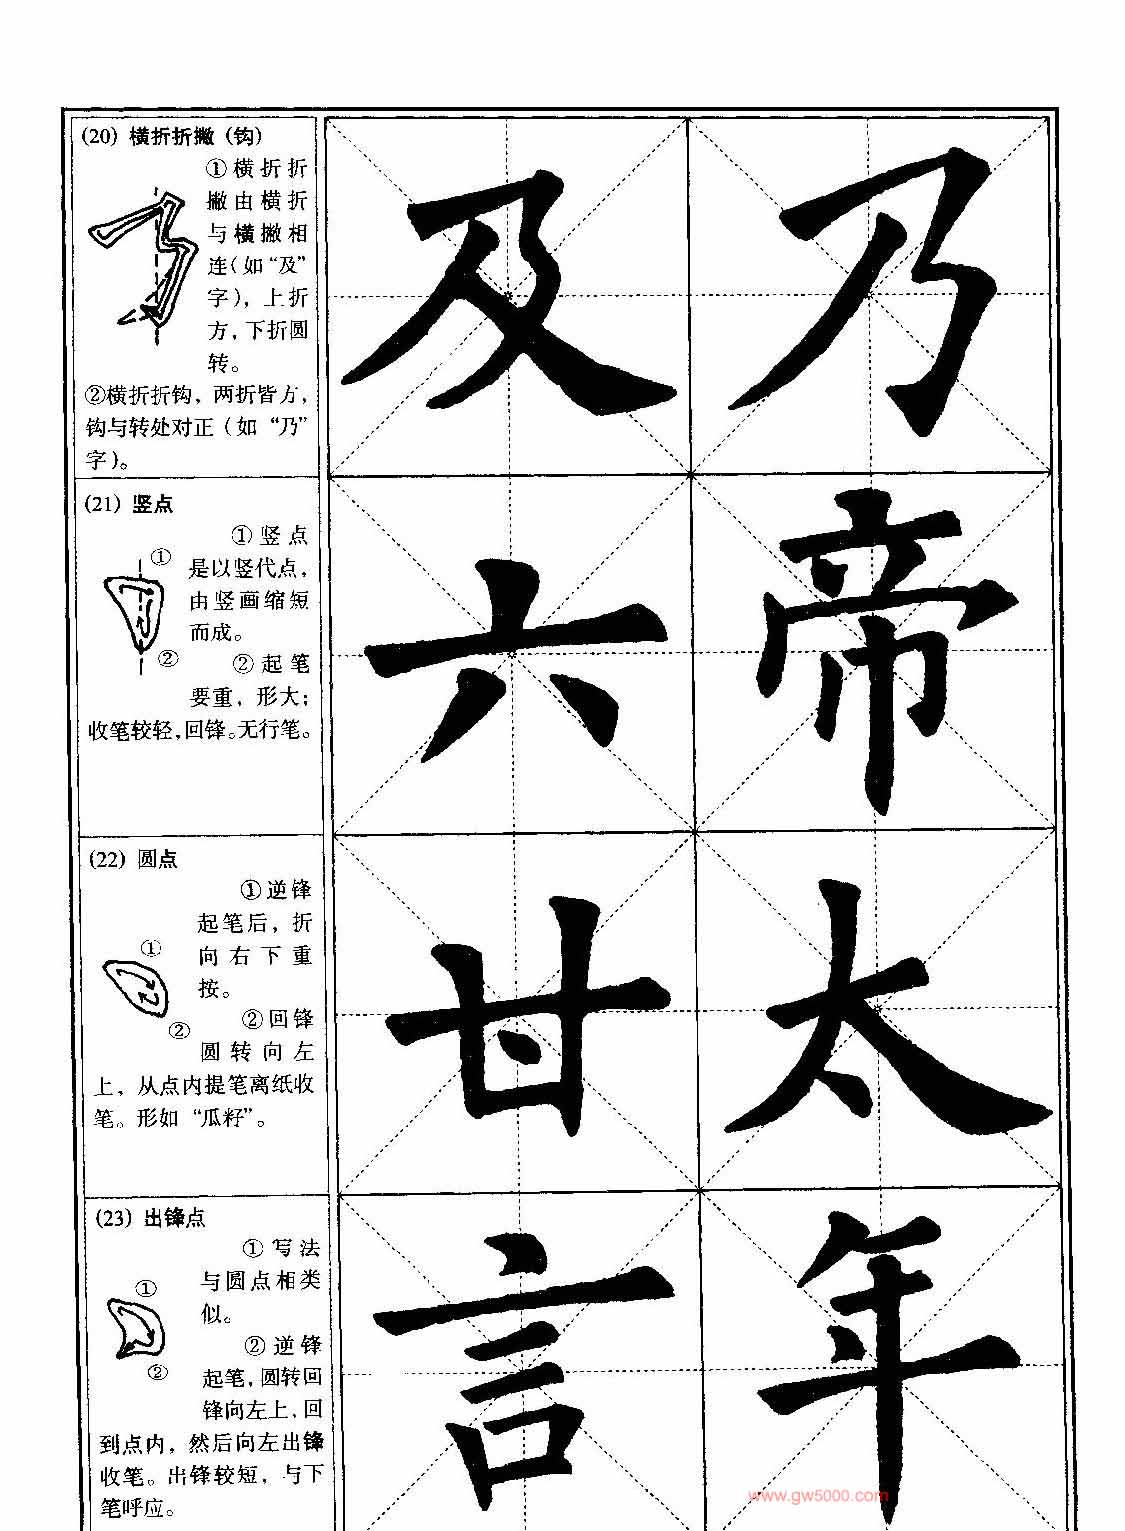 (20) 横折折撇（钩）
①横折折
撇由横折
与横撇相
连（如“及”
字），上折
方，下折圆
转。
②横折折钩，两折皆方，
钩与转处对正（如“乃”
字）。
及 乃
(21) 竖点
①
②
①竖点
是以竖代点，
由竖画缩短
而成。
②起笔
要重，形大；
收笔较轻，回锋。无行笔。
六 帝
(22) 圆点
①
②
①逆锋
起笔后，折
向右下重
按。
②回锋
圆转向左
上，从点内提笔离纸收
笔。形如“瓜籽”。
甘 太
(23) 出锋点
①
②
①写法
与圆点相类
似。
②逆锋
起笔，圆转回
锋向左上，回
到点内，然后向左出锋
收笔。出锋较短，与下
笔呼应。
言 年
www.gw5000.com